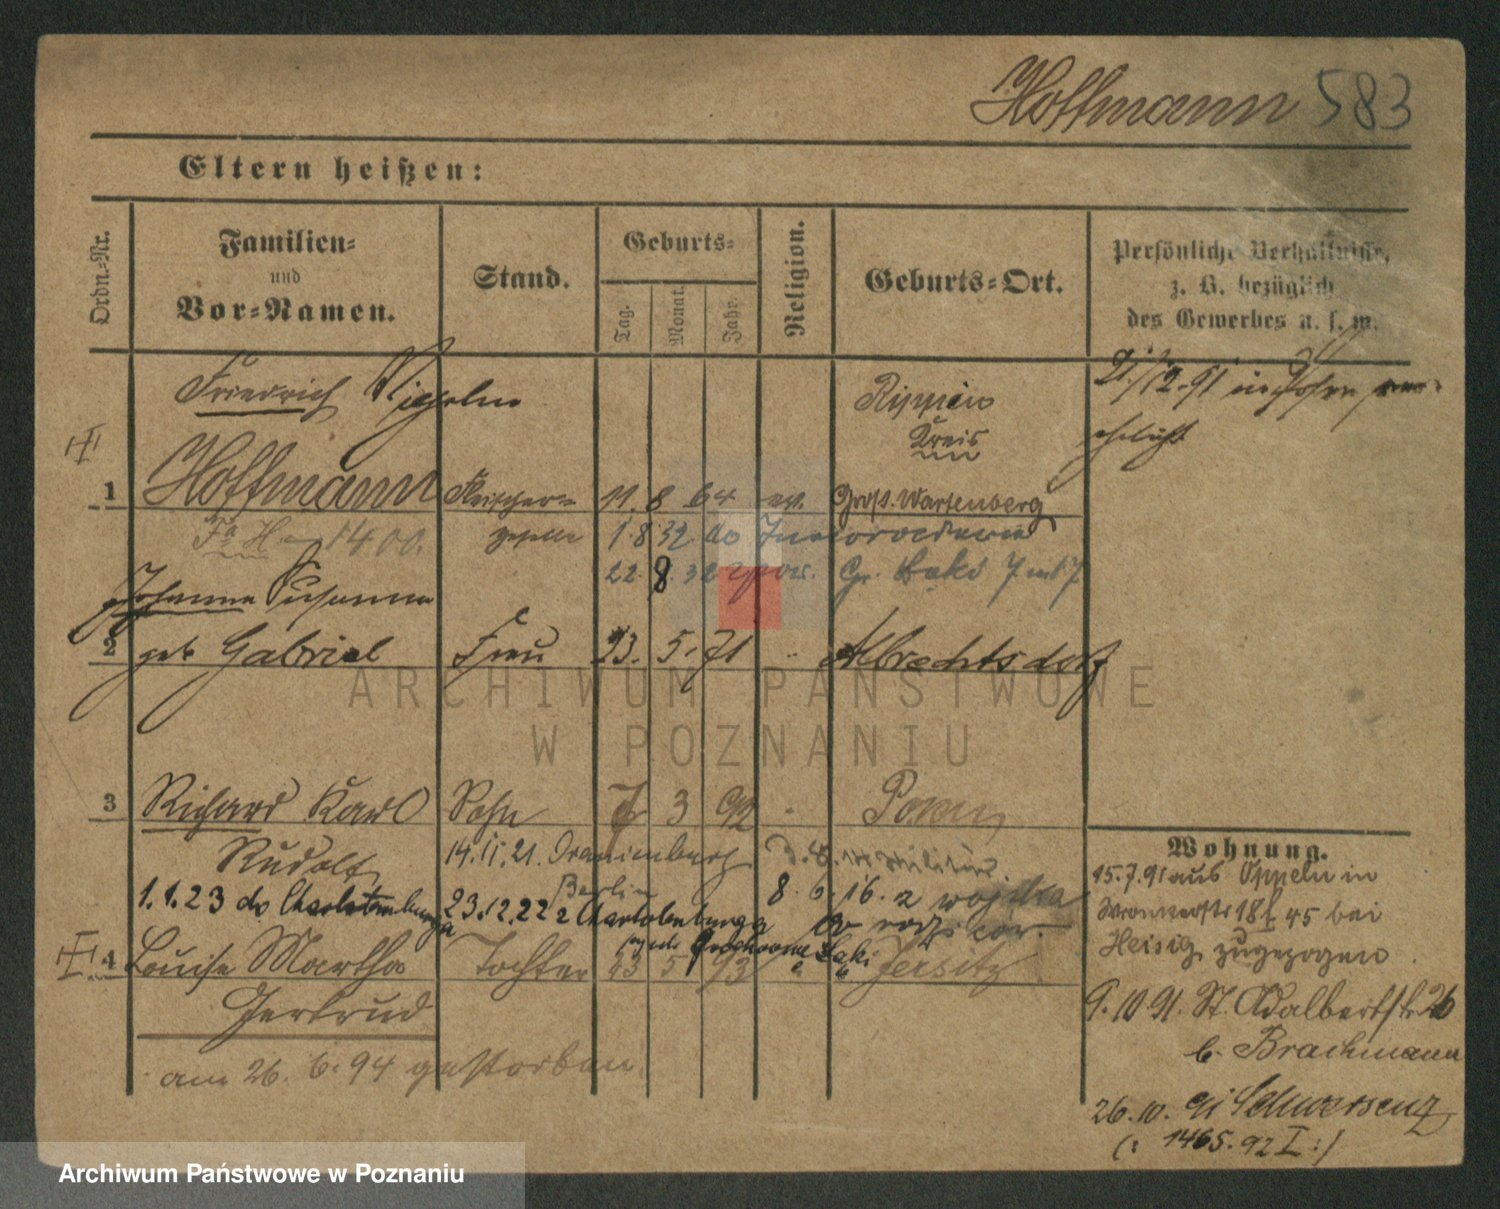 Hoffmann 583
Eltern heißen:
Ordn.=Nr.
Familien=
und
Vor=Namen.
Stand.
Geburts=
Tag.
Monat.
Jahr.
Religion.
Geburts=Ort.
Persönliche Verhältnisse,
z. B. bezüglich
des Gewerbes u. s. w.
Friedrich Wilhelm
Rippin
21./12.91 in Posen ver=
Kreis
ehelicht
1 Hoffmann Fleischer= 11. 8 64 ev. Groß. Wartenberg
1400. geselle 1. 8 32 do Inowrocławia
22. 8. 32 Gr. Łąki
Johanna Susanna
2 geb Gabriel Frau 23. 5. 71 " Albrechtsdorf
ARCHIWUM PAŃSTWOWE
W POZNANIU
3 Richard Karl Sohn 7 3 92 " Posen
Rudolf 14.11.21. Oranienburg
Berlin
1.1.23 do Charlottenburga 23.12.22 z Charlotenburga
8. 6. 16. z wojska
4 Louise Martha Tochter 23 5 93 " Jersitz
Grochowe Łąki
Gertrud
am 26. 6. 94 gestorben
Wohnung.
15.7.91 aus Oppeln in
45 bei
Heisig zugezogen.
9.10.91. St. Adalbertstr. 26
b. Brachmann
26.10. Schwersenz
(: 1465.92 I :)
Archiwum Państwowe w Poznaniu